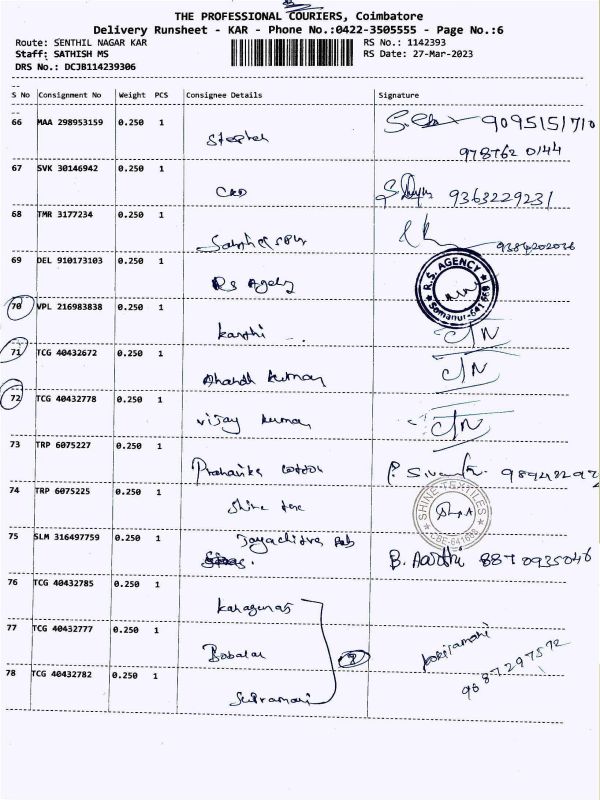 THE PROFESSIONAL COURIERS, Coimbatore
Delivery Runsheet - KAR - Phone No.:0422-3505555 - Page No.:6
Route: SENTHIL NAGAR KAR RS No.: 1142393
Staff: SATHISH MS RS Date: 27-Mar-2023
DRS No.: DCJB114239306
S No Consignment No Weight PCS Consignee Details Signature
66 MAA 298953159 0.250 1
9095151710
Stephen
978762 0144
67 SVK 30146942 0.250 1
9363229231
68 TMR 3177234 0.250 1
9384202036
69 DEL 910173103 0.250 1
R.S. AGENCY
Somanur-641 668
RS Agency
70 VPL 216983838 0.250 1
Karthi
C/N
71 TCG 40432672 0.250 1
C/N
Kumar
72 TCG 40432778 0.250 1
C/N
Vijay Kumar
73 TRP 6075227 0.250 1
Cotton
74 TRP 6075225 0.250 1
SHINE TEXTILES
CBE-641668
Shine tex
75 SLM 316497759 0.250 1
B. Aarthi 8870935046
76 TCG 40432785 0.250 1
77 TCG 40432777 0.250 1
78 TCG 40432782 0.250 1
9687297572